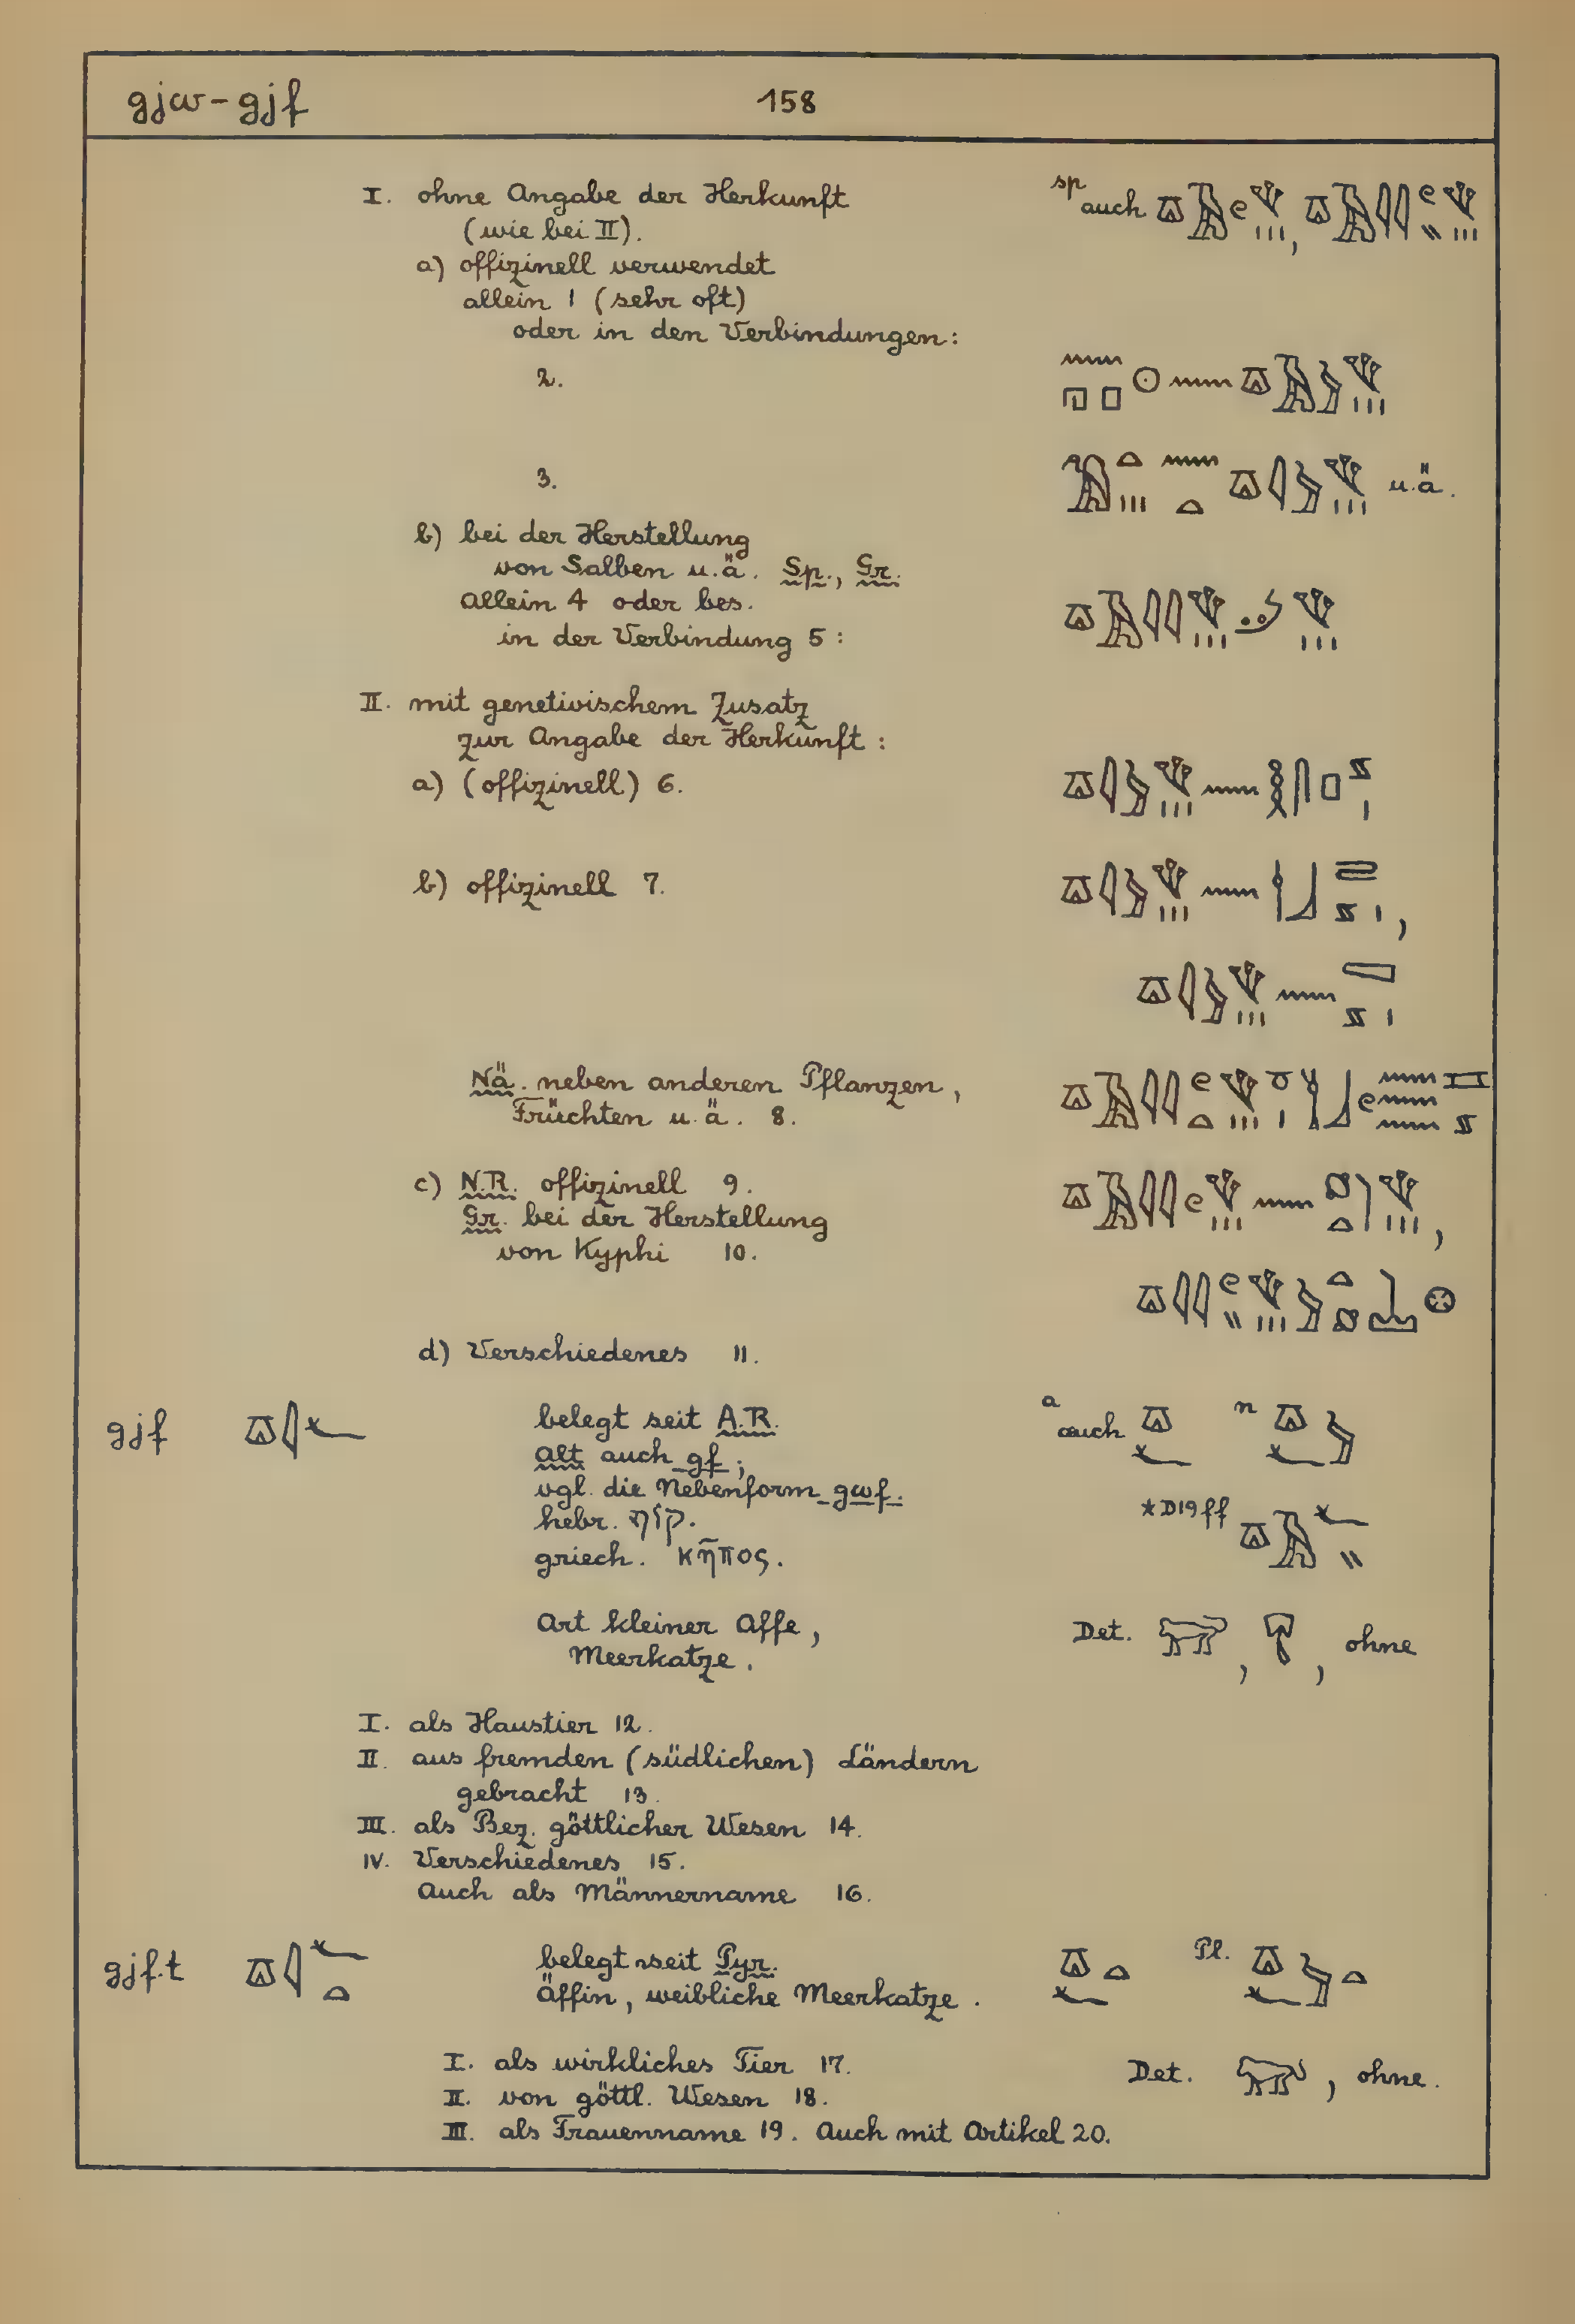 gjw - gjf 158
I. ohne Angabe der Herkunft
(wie bei II).
sp auch
a) offizinell verwendet
allein 1 (sehr oft)
oder in den Verbindungen:
2.
3. u.ä.
b) bei der Herstellung
von Salben u.ä. Sp., Gr.
allein 4 oder bes.
in der Verbindung 5 :
II. mit genetivischem Zusatz
zur Angabe der Herkunft :
a) (offizinell) 6.
b) offizinell 7.
Nä. neben anderen Pflanzen,
Früchten u.ä. 8.
c) N.R. offizinell 9.
Gr. bei der Herstellung
von Kyphi 10.
d) Verschiedenes 11.
gjf belegt seit A.R. a auch n
alt auch gf;
vgl. die Nebenform gwf.
hebr. קוף. *D19ff
griech. κῆπος.
Art kleiner Affe, Det. , , ohne
Meerkatze.
I. als Haustier 12.
II. aus fremden (südlichen) Ländern
gebracht 13.
III. als Bez. göttlicher Wesen 14.
IV. Verschiedenes 15.
Auch als Männername 16.
gjf.t belegt seit Pyr. Pl.
Äffin, weibliche Meerkatze.
I. als wirkliches Tier 17. Det. , ohne.
II. von göttl. Wesen 18.
III. als Frauenname 19. Auch mit Artikel 20.